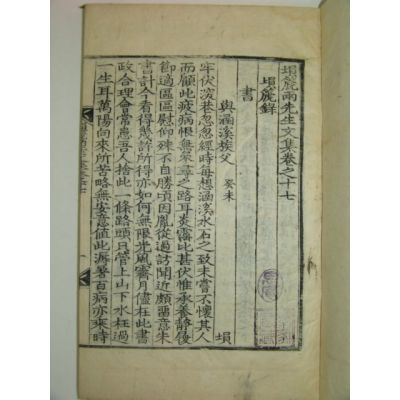 塤篪兩先生文集卷之十七
塤篪錄
書
與涵溪族父 癸未
塤
牢伏深巷忽忽經時每想涵溪水石之致未嘗不懷其人
而顧此疲病悵無來尋之路耳炎霾比甚伏惟承養靜候
節適區區慰仰殊不自勝頃因胤從過訪聞近頗留意朱
書計今看得幾許所得亦如何無限光風霽月儘在此書
政合理會常患吾人捨此一條路頭只管上山下水枉過
一生耳萬陽向來所苦略無安意値此溽暑百病亦乘時